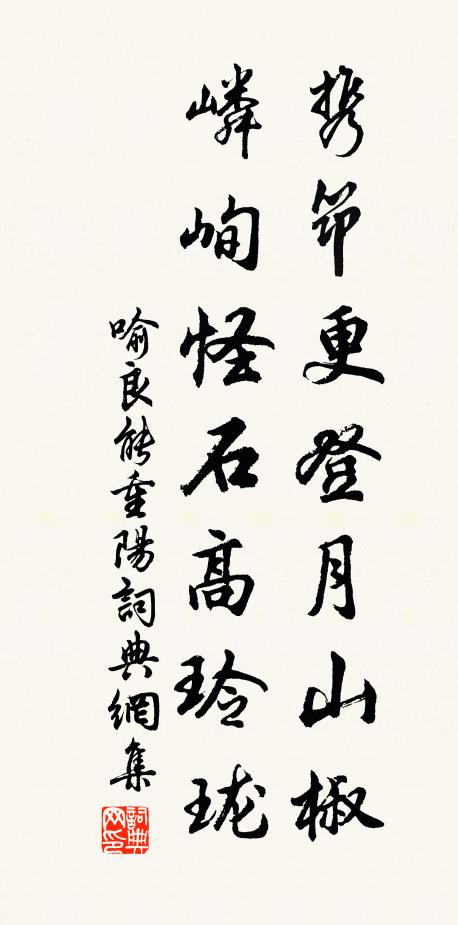 携筇更登月山椒
嶙峋怪石髙玲珑
喻良能重陽詞典網集
詞典
网印